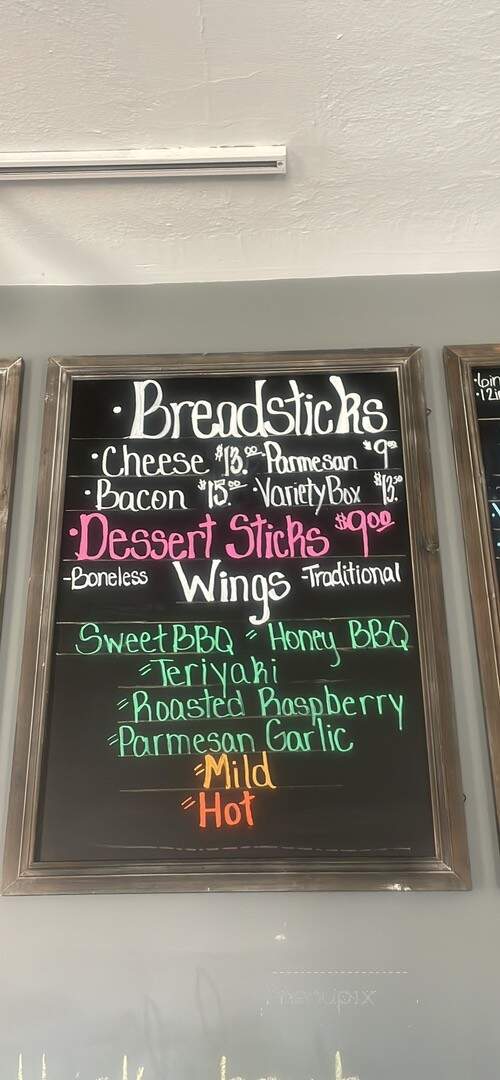 ·Breadsticks
·Cheese $13.00 ·Parmesan $9.00
·Bacon $15.00 ·Variety Box $13.50
·Dessert Sticks $9.00
-Boneless Wings -Traditional
Sweet BBQ " Honey BBQ
"Teriyaki
"Roasted Raspberry
"Parmesan Garlic
"Mild
"Hot
·6in
·12in